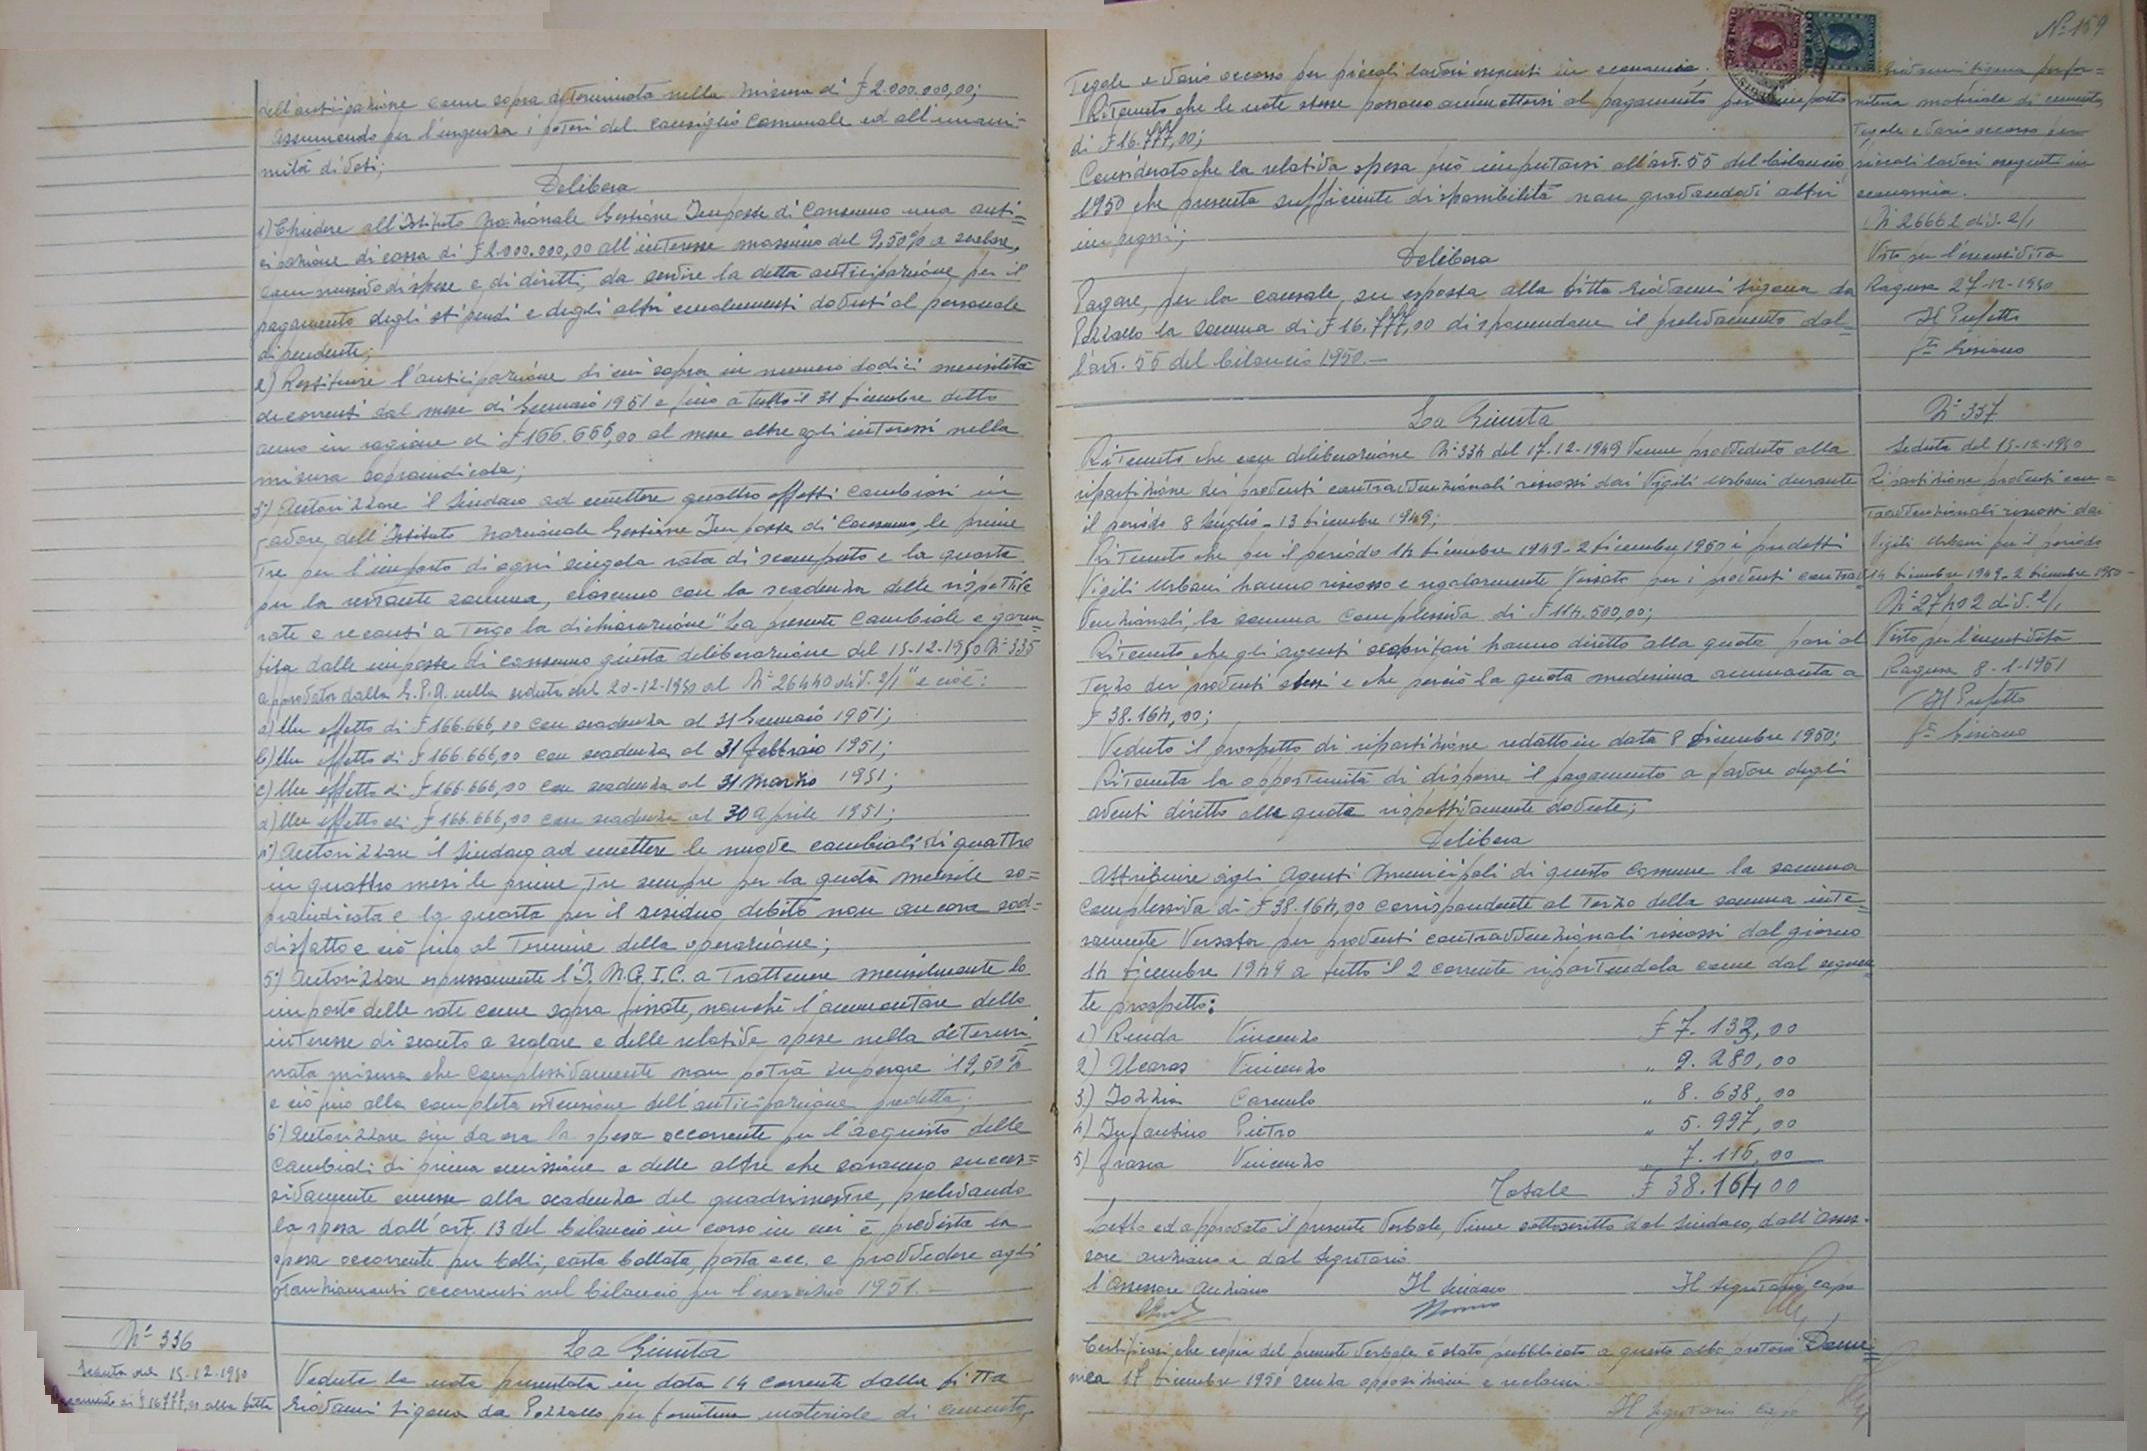 dell'anticipazione come sopra determinata nella misura di £ 2.000.000,00;
Assumendo per l'urgenza i poteri del Consiglio Comunale ed all'unani-
mità di voti;
Delibera
1) Chiedere all'Istituto Nazionale Gestione Imposte di Consumo una anti=
cipazione di cassa di £ 2.000.000,00 all'interesse massimo del 9,50% a scalare,
di spese e di diritti, da servire la detta anticipazione, per il
pagamento degli stipendi e degli altri emolumenti dovuti al personale
dipendente;
2) Restituire l'anticipazione di cui sopra in numero dodici mensilità
decorrenti dal mese di Gennaio 1951 e fino a tutto il 31 Dicembre detto
anno in ragione di £ 166.666,00 al mese oltre agli interessi nella
misura sopraindicata;
3) Autorizzare il Sindaco ad emettere quattro effetti cambiari in
favore dell'Istituto Nazionale Gestione Imposte di Consumo, le prime
tre per l'importo di ogni singola rata di scomputo e la quarta
per la restante somma, ciascuno con la scadenza delle rispettive
rate e recanti a tergo la dichiarazione "La presente cambiale e garan=
tita dalle imposte di consumo giusta deliberazione del 15-12-1950 N° 335
approvata dalla G.P.A. nella seduta del 20-12-1950 al N° 26440 div. 2/1" e cioè:
a) Un effetto di £ 166.666,00 con scadenza al 31 Gennaio 1951;
b) Un effetto di £ 166.666,00 con scadenza al 31 Febbraio 1951;
c) Un effetto di £ 166.666,00 con scadenza al 31 Marzo 1951;
d) Un effetto di £ 166.666,00 con scadenza al 30 Aprile 1951;
4) Autorizzare il Sindaco ad emettere le nuove cambiali di quattro
in quattro mesi le prime tre sempre per la quota mensile so=
praindicata e la quarta per il residuo debito non ancora sod=
disfatto e ciò fino al termine della operazione;
5) Autorizzare espressamente l'I.N.G.I.C. a trattenere mensilmente lo
importo delle rate come sopra fissate, nonchè l'ammontare dello
interesse di sconto a scalare e delle relative spese nella determi=
nata misura che complessivamente non potrà superare 9,50%
e ciò fino alla completa estensione dell'anticipazione predetta;
6) Autorizzare sin da ora la spesa occorrente per l'acquisto delle
cambiali di prima emissione e delle altre che saranno succes=
sivamente emesse alla scadenza del quadrimestre, prelevando
la spesa dall'art. 13 del bilancio in corso in cui è prevista la
spesa occorrente per bolli, carta bollata, posta ecc. e provvedere agli
stanziamenti occorrenti nel bilancio per l'esercizio 1951.-
N° 336
Seduta del 15-12-1950
Pagamento di £ 16777,00 alla Ditta
La Giunta
Veduta la nota presentata in data 14 corrente dalla Ditta
Giovanni Sigona da Pozzallo per fornitura materiale di cemento,
N° 159
Tegole e vario occorso per piccoli lavori eseguiti in economia;
Ritenuto che le note stesse possono ammettersi al pagamento per l'importo
di £ 16.777,00;
Considerato che la relativa spesa può imputarsi all'art. 55 del bilancio
1950 che presenta sufficiente disponibilità non gravandovi altri
impegni;
Delibera
Pagare, per la causale su esposta alla Ditta Giovanni Sigona da
Pozzallo la somma di £ 16.777,00 disponendone il prelevamento dal=
l'art. 55 del bilancio 1950.-
Giovanni Sigona per for=
nitura materiale di cemento,
Tegole e vario occorso per
piccoli lavori eseguiti in
economia.
N° 26662 div. 2/1
Visto per l'esecutività
Ragusa 27-12-1950
Il Prefetto
La Giunta
Ritenuto che con deliberazione N° 334 del 17-12-1949 venne provveduto alla
ripartizione dei proventi contravvenzionali riscossi dai Vigili Urbani durante
il periodo 8 Luglio - 13 Dicembre 1949;
Ritenuto che per il periodo 14 Dicembre 1949 - 2 Dicembre 1950 i predetti
Vigili Urbani hanno riscosso e regolarmente versato per i proventi contrav=
venzionali, la somma complessiva di £ 114.500,00;
Ritenuto che gli agenti scopritori hanno diritto alla quota pari al
terzo dei proventi stessi e che perciò la quota medesima ammonta a
£ 38.164,00;
Veduto il prospetto di ripartizione redatto in data 8 Dicembre 1950;
Ritenuta la opportunità di disporre il pagamento a favore degli
aventi diritto alla quota rispettivamente dovute;
Delibera
Attribuire agli Agenti Municipali di questo Comune la somma
complessiva di £ 38.164,00 corrispondente al terzo della somma inte=
ramente versata per proventi contravvenzionali riscossi dal giorno
14 Dicembre 1949 a tutto il 2 corrente ripartendola come dal seguen=
te prospetto:
1) Renda Vincenzo £ 7.133,00
2) Vincenzo " 9.280,00
3) Iozzia Carmelo " 8.638,00
4) Infantino Pietro " 5.997,00
5) Vincenzo " 7.116,00
Totale £ 38.164,00
N° 337
Seduta del 15-12-1950
Ripartizione proventi con=
travvenzionali riscossi dai
Vigili Urbani per il periodo
14 Dicembre 1949 - 2 Dicembre 1950 -
N° 27402 div. 2/1
Visto per l'esecutività
Ragusa 8-1-1951
Il Prefetto
Letto ed approvato il presente verbale, viene sottoscritto dal Sindaco, dall'Asses-
sore anziano e dal Segretario
L'Assessore Anziano Il Sindaco Il Segretario Capo
Certificasi che copia del presente verbale è stato pubblicato a questo albo pretorio Dome=
nica 17 Dicembre 1950 senza opposizioni e reclami.
Il Segretario Capo